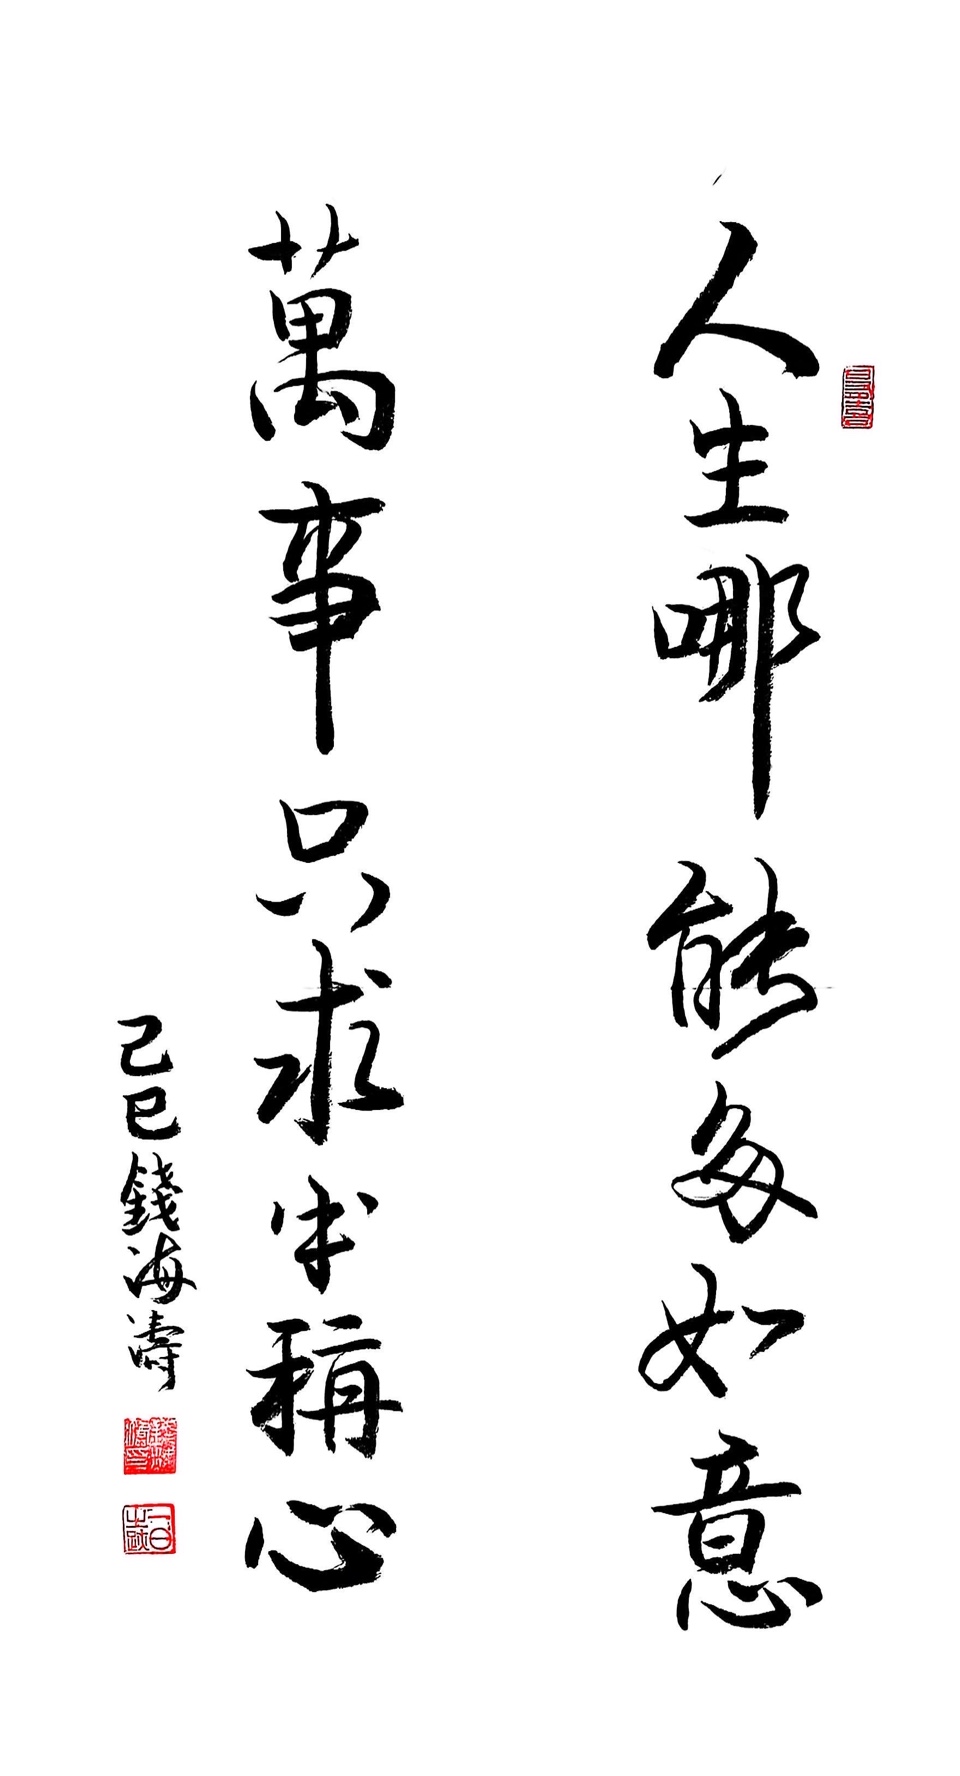 人生哪能多如意
萬事只求半稱心
己巳錢海濤